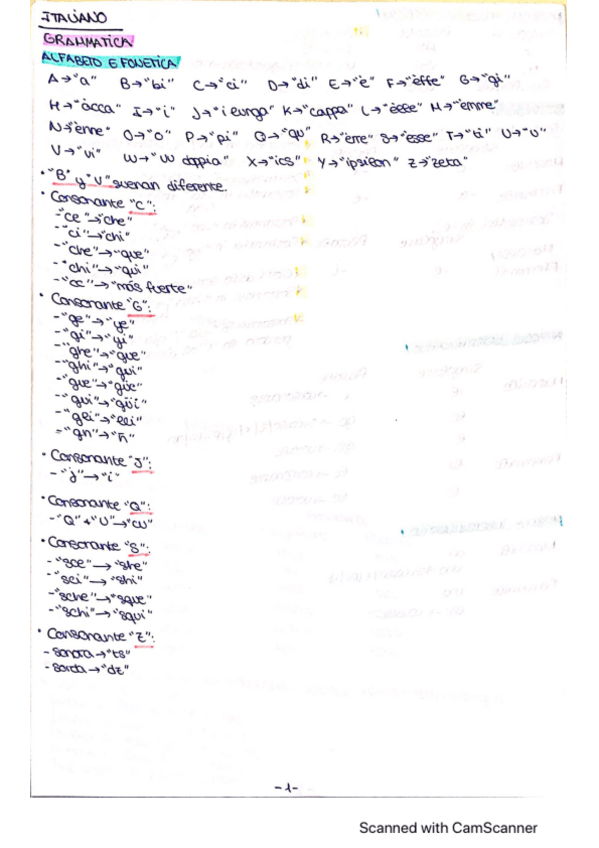 ITALIANO
GRAMMATICA
ALFABETO E FONETICA
A→"a" B→"bi" C→"ci" D→"di" E→"e" F→"èffe" G→"gi"
H→"àcca" I→"i" J→"i lunga" K→"cappa" L→"èsse" M→"èmme"
N→"ènne" O→"o" P→"pi" Q→"qu" R→"èrre" S→"èsse" T→"ti" U→"u"
V→"vi" W→"vv doppia" X→"ics" Y→"ipsilon" Z→"zeta"
• "B" y "V" suenan diferente.
• Consonante "C":
-"ce"→"che"
-"ci"→"chi"
-"che"→"que"
-"chi"→"qui"
-"cc"→"más fuerte"
• Consonante "G":
-"ge"→"ye"
-"gi"→"yi"
-"ghe"→"gue"
-"ghi"→"gui"
-"gue"→"güe"
-"gui"→"güi"
-"gli"→"lli"
-"gn"→"ñ"
• Consonante "J":
-"j"→"i"
• Consonante "Q":
-"Q"+"U"→"cu"
• Consonante "S":
-"sce"→"she"
-"sci"→"shi"
-"sche"→"sque"
-"schi"→"squi"
• Consonante "Z":
-sonora→"ts"
-sorda→"dz"
-1-
Scanned with CamScanner